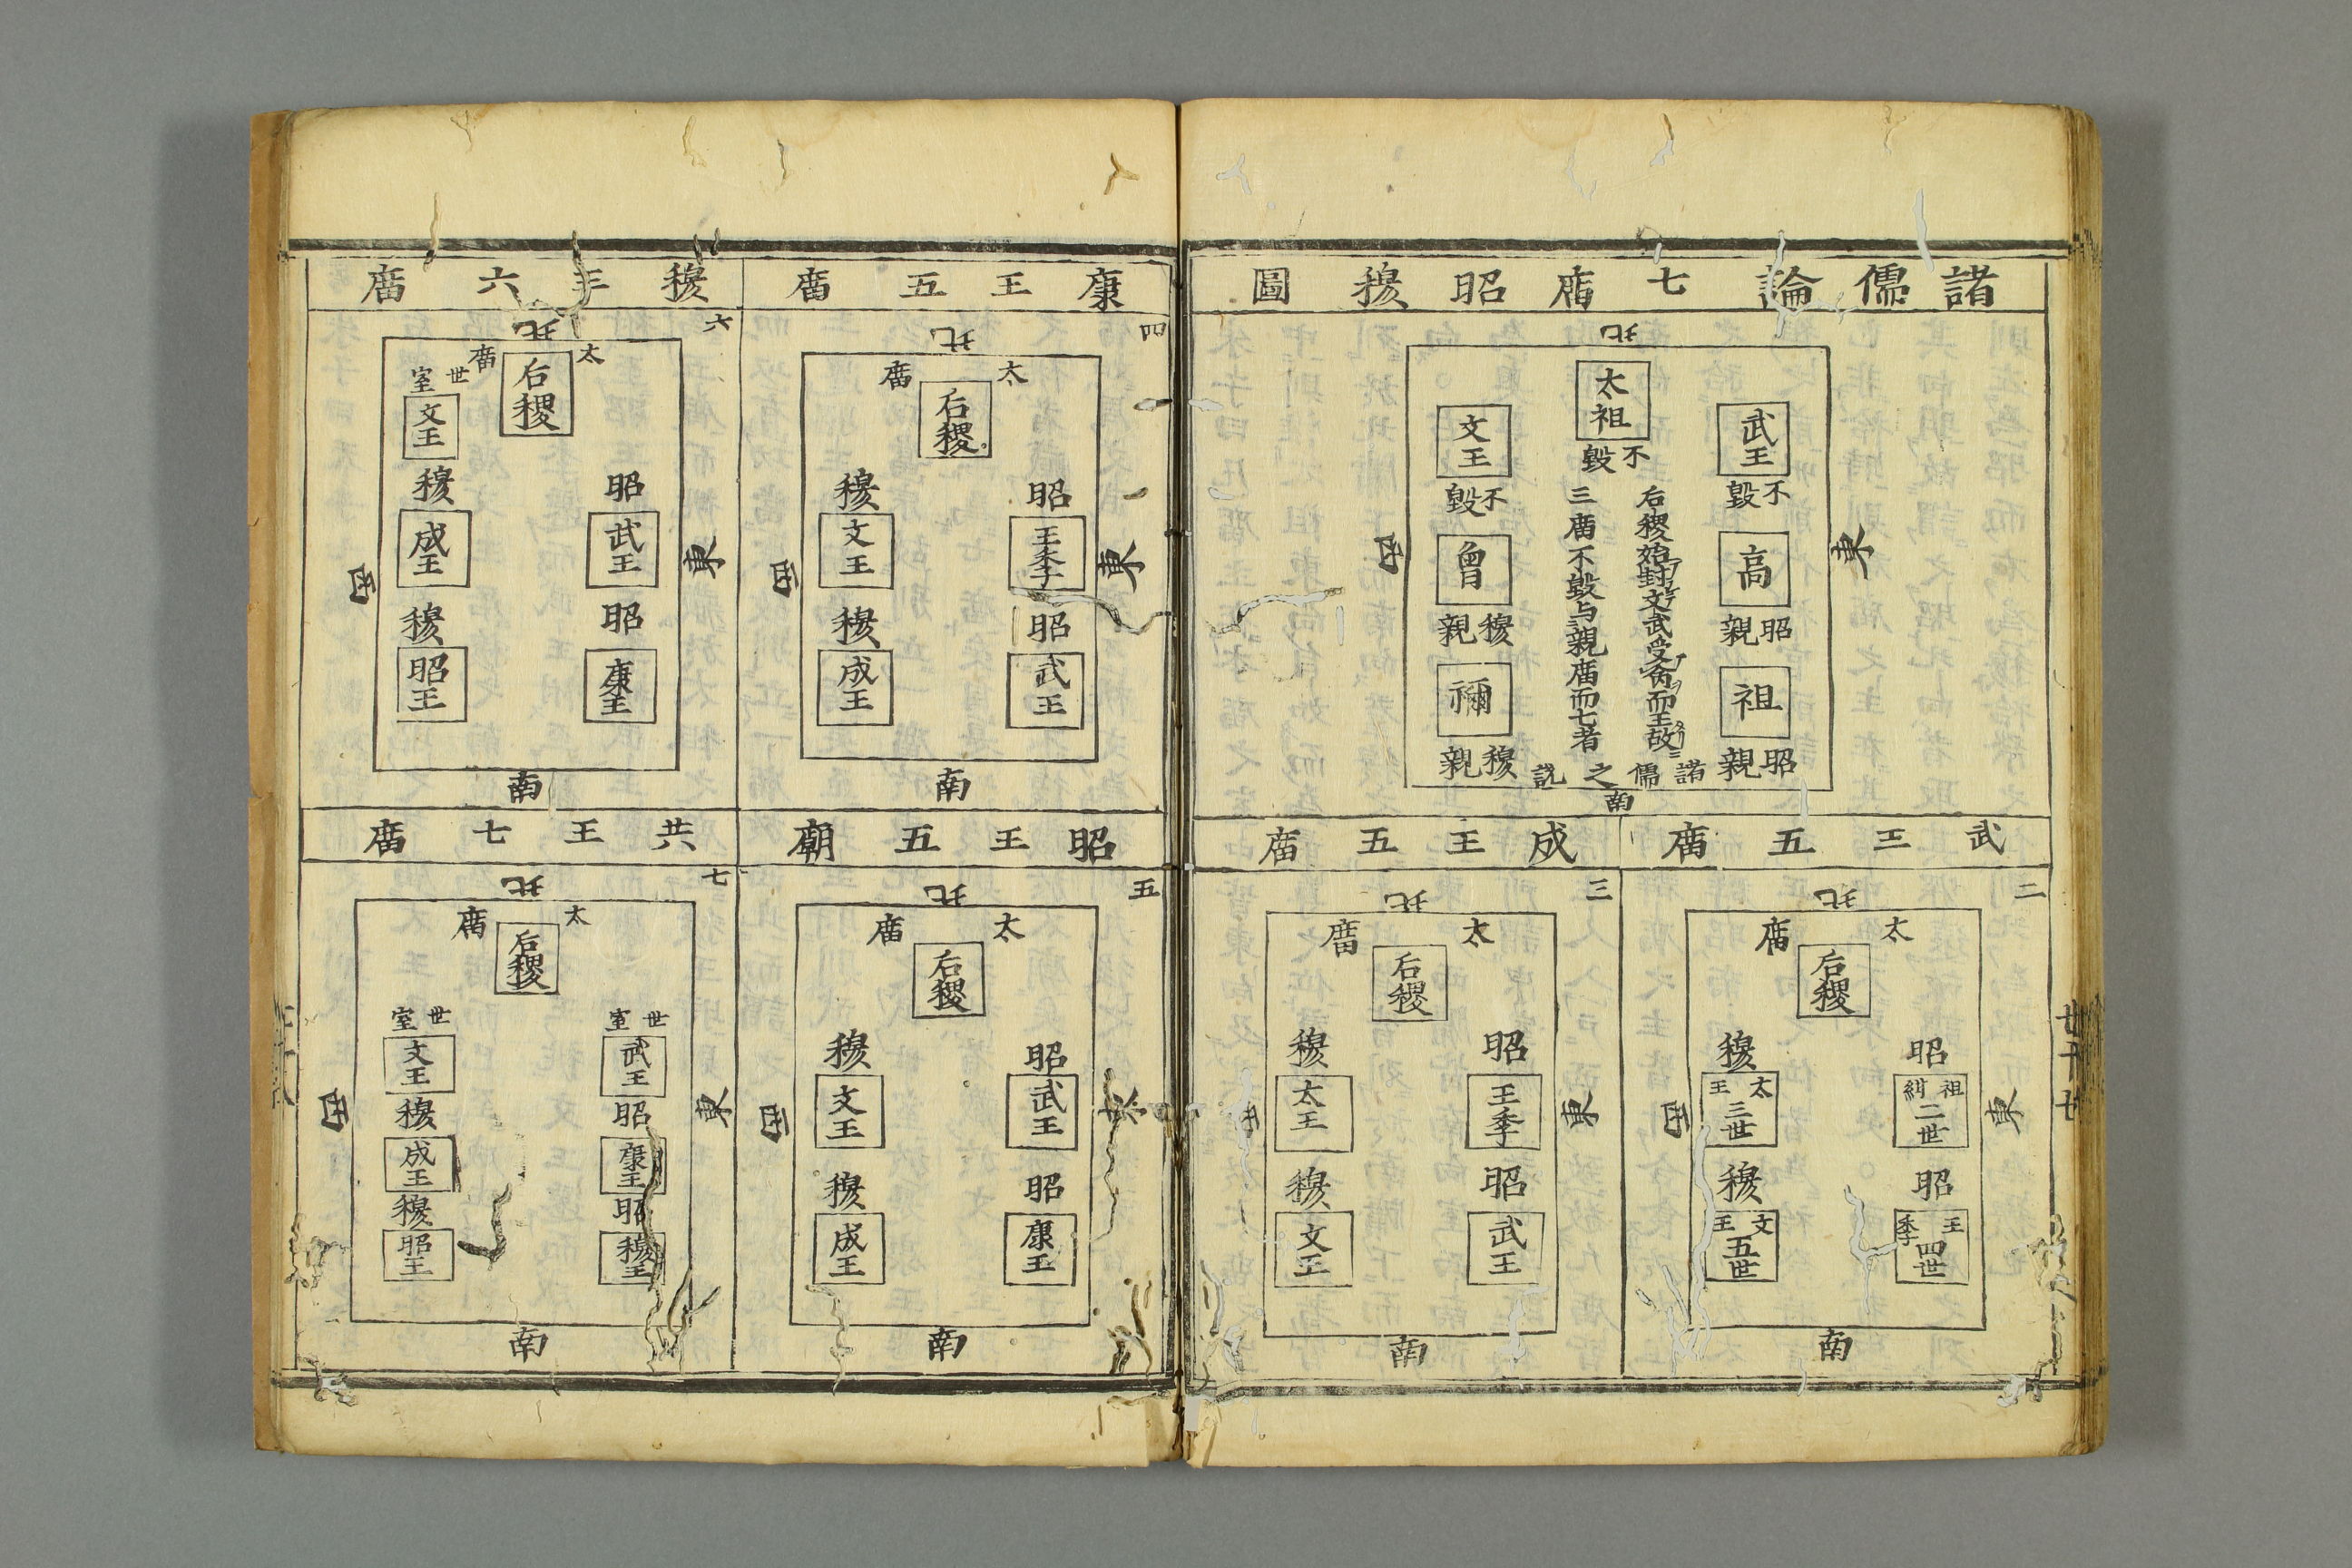 諸儒論七庿昭穆圖
北
太祖
不毀
武王
不毀
高
昭親
祖
昭親
后稷始封文武受命而王故
三庿不毀与親庿而七者
諸儒之説
文王
不毀
曾
穆親
禰
穆親
東
西
南
武王五庿
二
北
太庿
后稷
昭
祖紺
二世
昭
王季
四世
穆
太王
三世
穆
文王
五世
東
西
南
成王五庿
三
北
太庿
后稷
昭
王季
昭
武王
穆
太王
穆
文王
東
西
南
康王五庿
四
北
太庿
后稷
昭
王季
昭
武王
穆
文王
穆
成王
東
西
南
昭王五朝
五
北
太庿
后稷
昭
武王
昭
康王
穆
文王
穆
成王
東
西
南
穆王六庿
六
北
太庿
后稷
昭
武王
昭
康王
世室
文王
穆
成王
穆
昭王
東
西
南
共王七庿
七
北
太庿
后稷
世室
武王
昭
康王
昭
穆王
世室
文王
穆
成王
穆
昭王
東
西
南